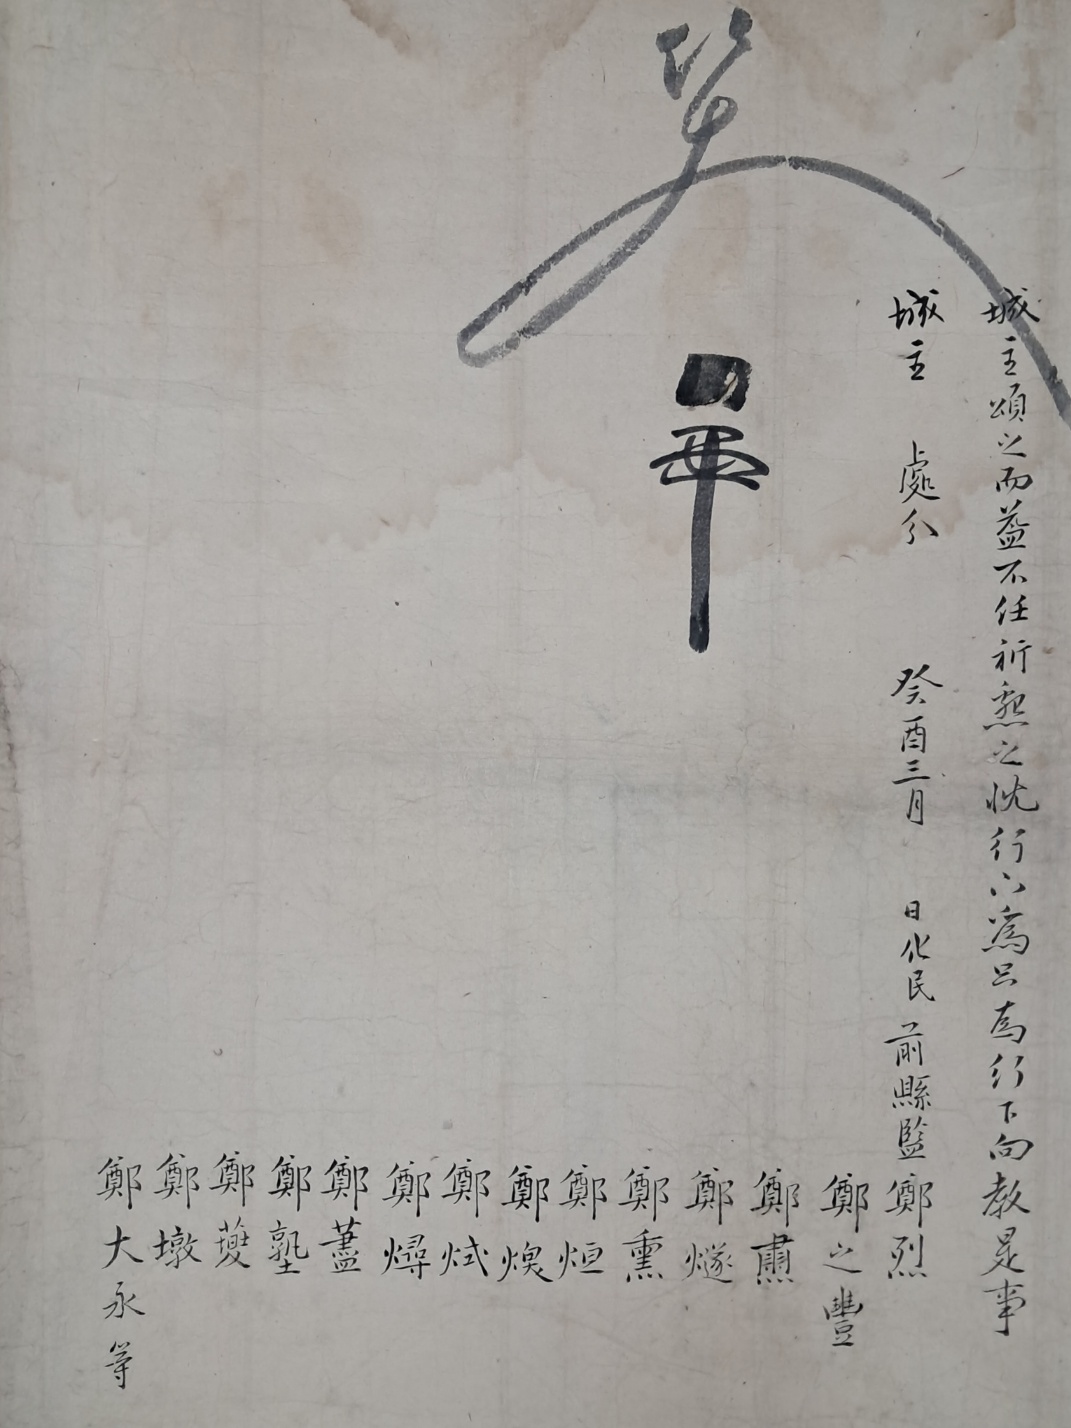 城主頌之而益不任祈懇之忱行下爲只爲行下向敎是事
城主 處分 癸酉三月 日化民前縣監鄭烈
鄭之豐
鄭燾
鄭燧
鄭熏
鄭烜
鄭煥
鄭烒
鄭燖
鄭藎
鄭塾
鄭墩
鄭大永等